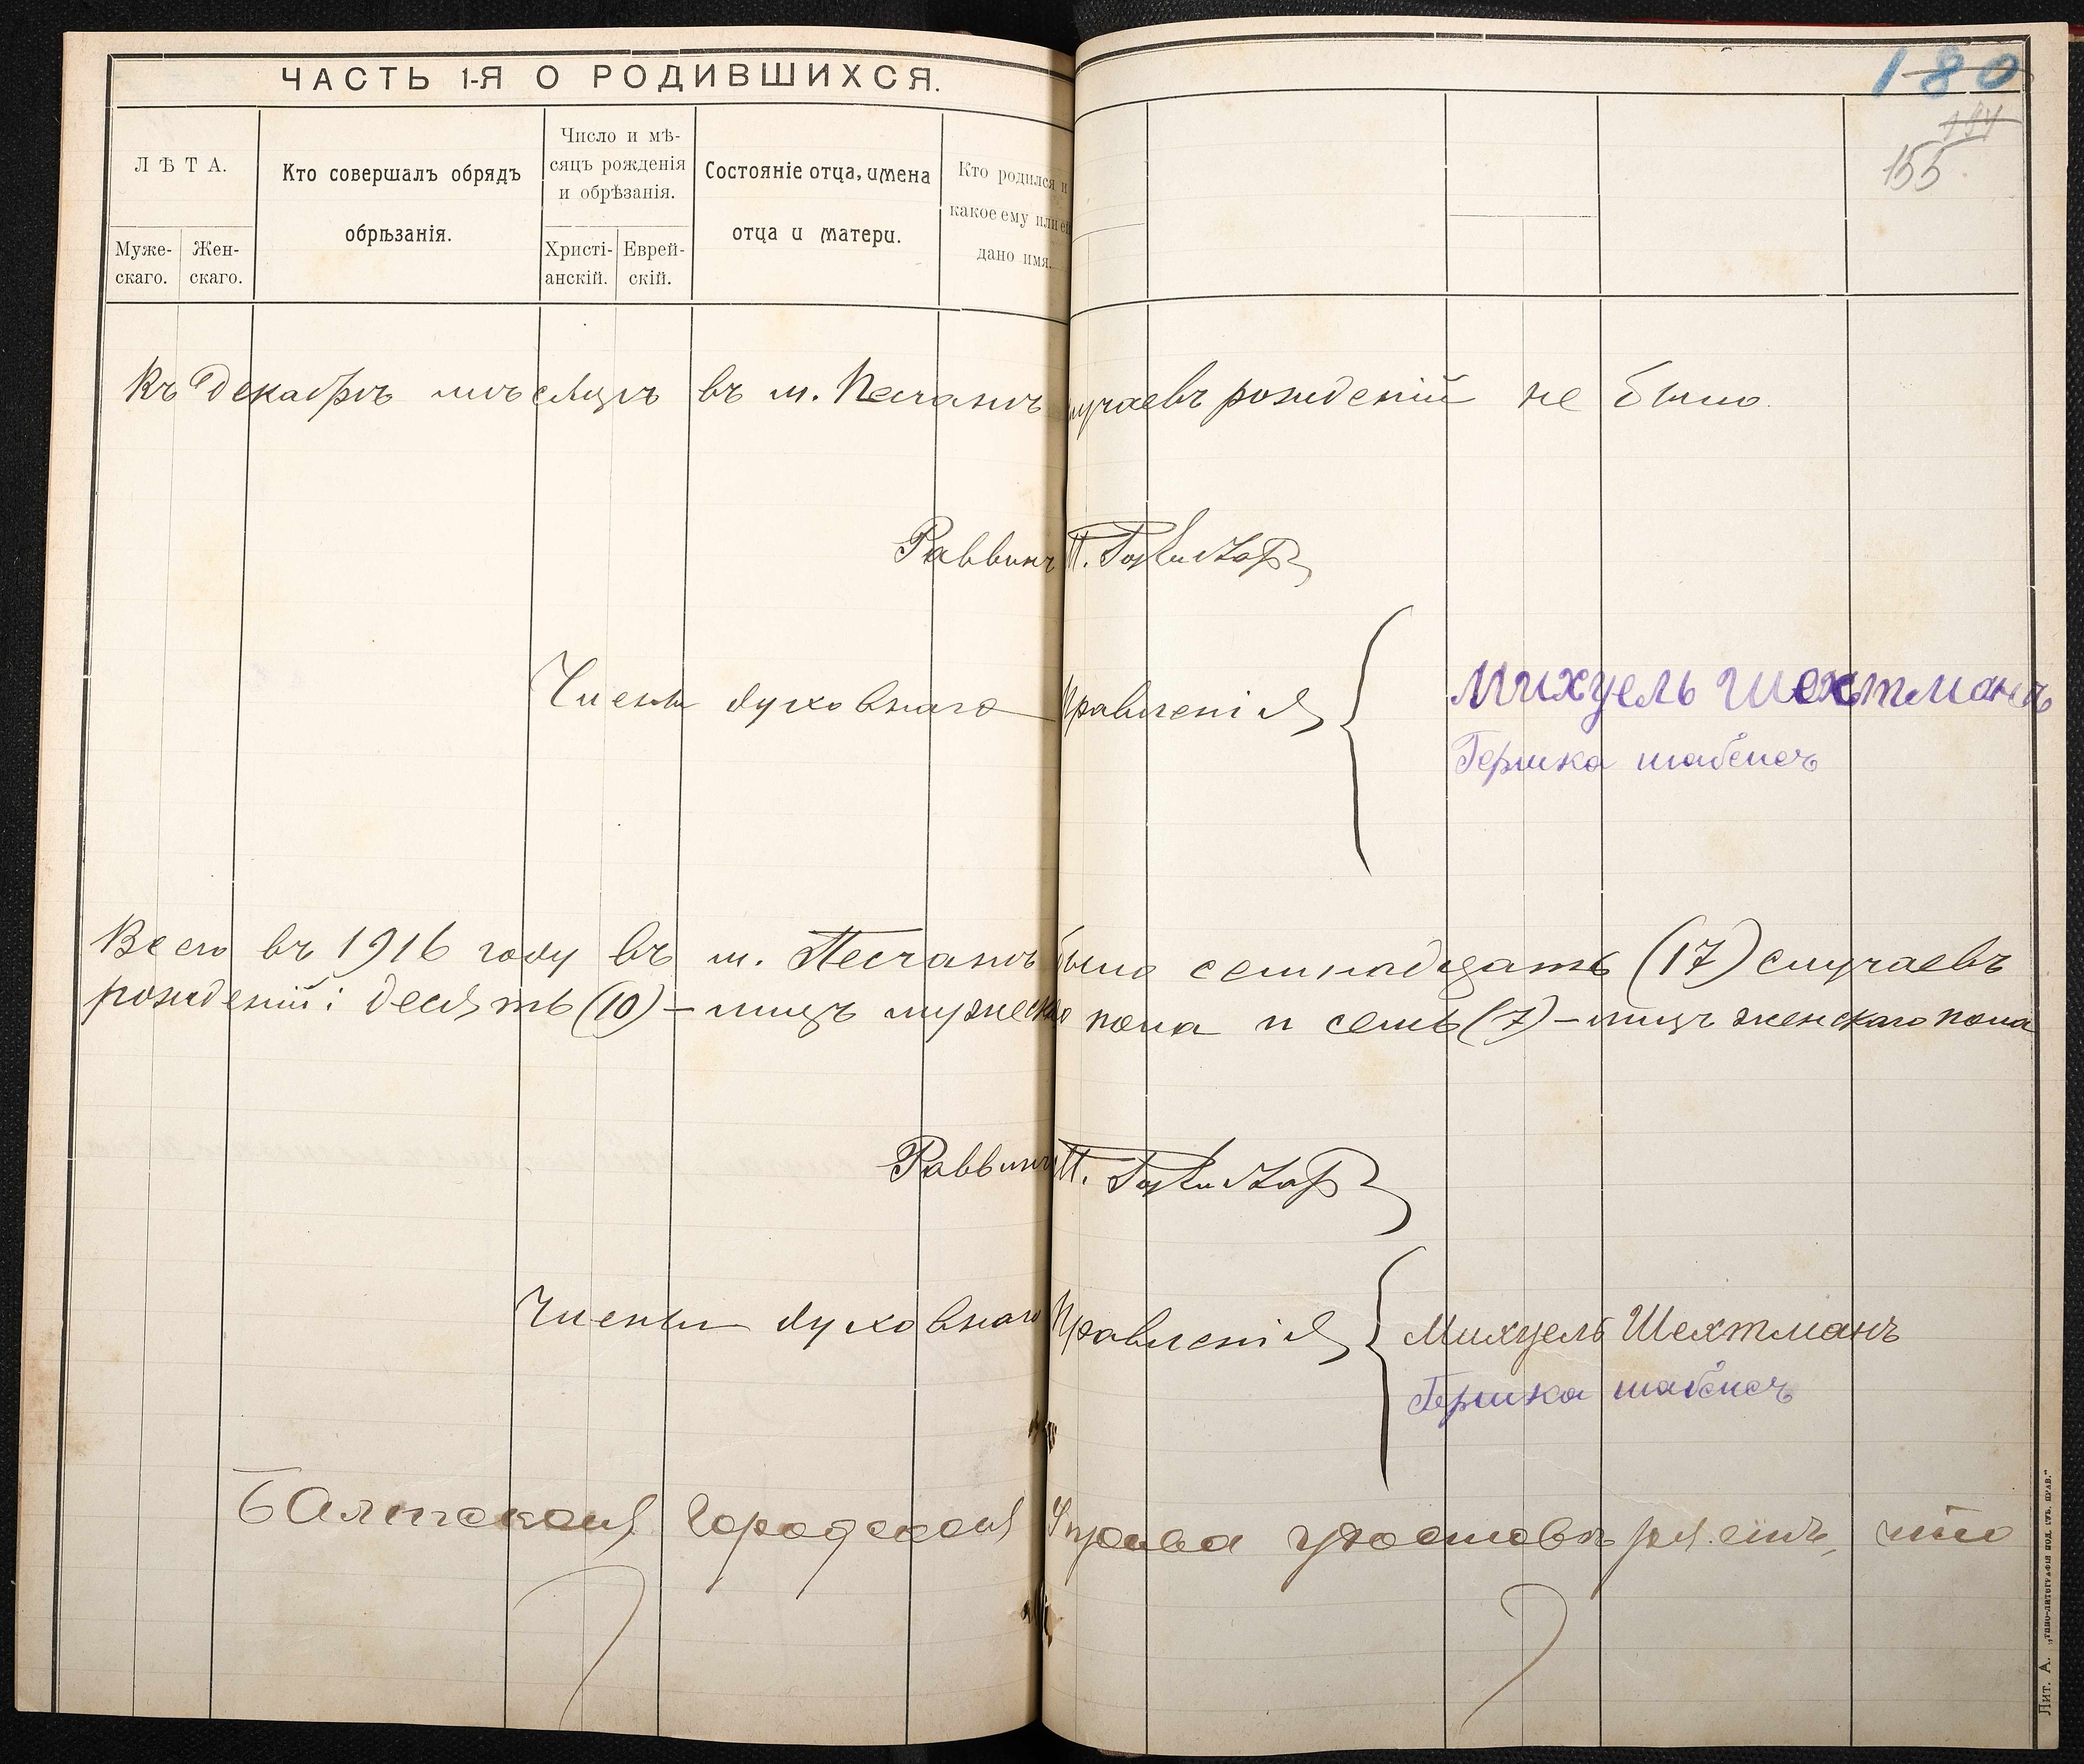 ЧАСТЬ 1-Я О РОДИВШИХСЯ.
180
144
155
ЛѢТА.
Муже-
скаго.
Жен-
скаго.
Кто совершалъ обрядъ
обрѣзанія.
Число и мѣ-
сяцъ рожденія
и обрѣзанія.
Христі-
анскій.
Еврей-
скій.
Состояніе отца, имена
отца и матери.
Кто родился и
какое ему или ей
дано имя.
Въ Декабрѣ мѣсяцѣ въ м. Песчанѣ случаевъ рожденій не было.
Раввинъ П.
Члены духовнаго Правленія
Михуель Шехтманъ
Гершко
Всего въ 1916 году въ м. Песчанѣ было семнадцать (17) случаевъ
рожденій: десять (10) – лицъ мужескаго пола и семь (7) – лицъ женскаго пола
Раввинъ П.
Члены духовнаго Правленія
Михуель Шехтманъ
Гершко
Балтская Городская Управа удостовѣряетъ, что
Лит. А. „Типо-литографія под. губ. прав."